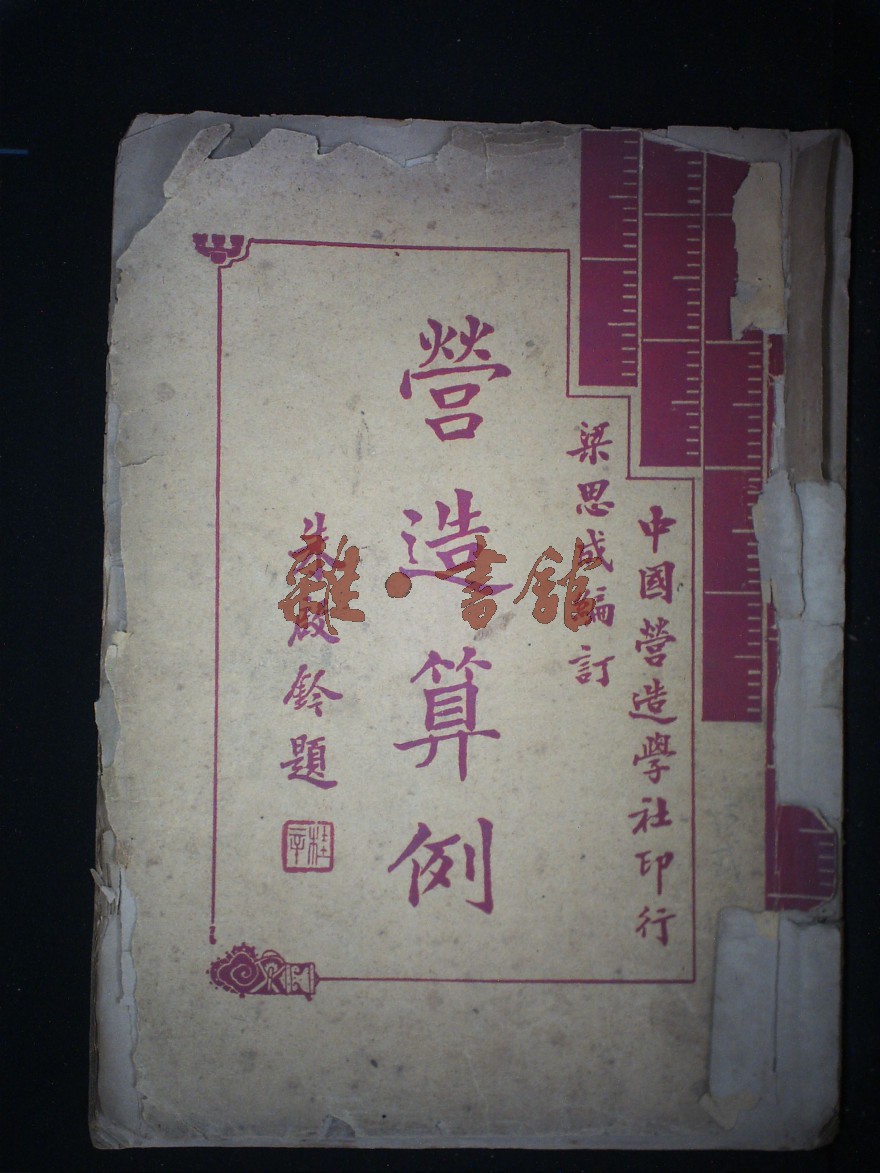 中國營造學社印行
梁思成編訂
營造算例
朱啟鈐題
桂辛
雜·書館